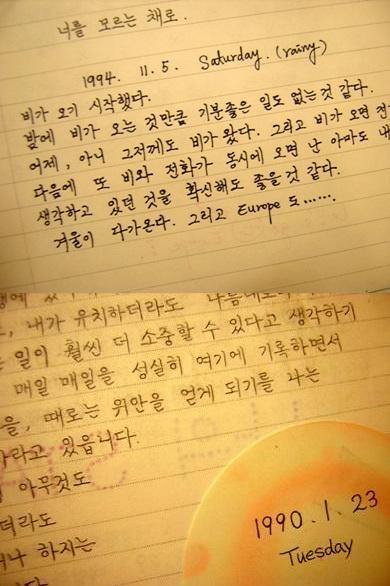 너를 모르는 채로.
1994. 11. 5. Saturday. (rainy)
비가 오기 시작했다.
밤에 비가 오는 것만큼 기분좋은 일도 없는것 같다.
어제, 아니 그저께도 비가 왔다. 그리고 비가 오면 전
다음에 또 비와 전화가 동시에 오면 난 아마도 내
생각하고 있던 것을 확신해도 좋을것 같다.
겨울이 다가온다. 그리고 Europe 도......
내가 유치하더라도
일이 훨씬 더 소중할 수 있다고 생각하기
매일 매일을 성실히 여기에 기록하면서
을, 때로는 위안을 얻게 되기를 나는
라고 있읍니다.
아무것도
더라도
나 하지는
1990. 1. 23
Tuesday